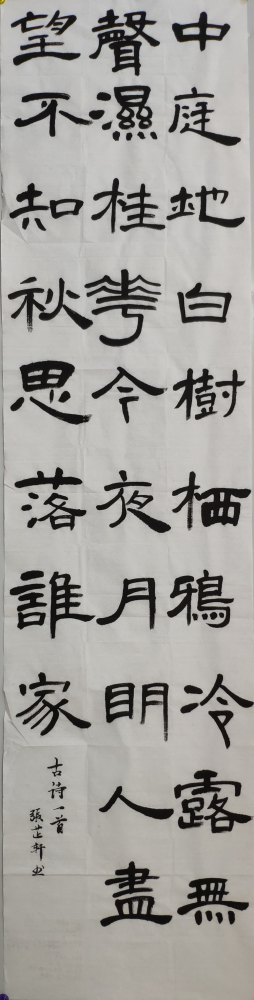 中庭地白樹栖鴉冷露無
聲濕桂花今夜月明人盡
望不知秋思落誰家
古诗一首
張芷軒书